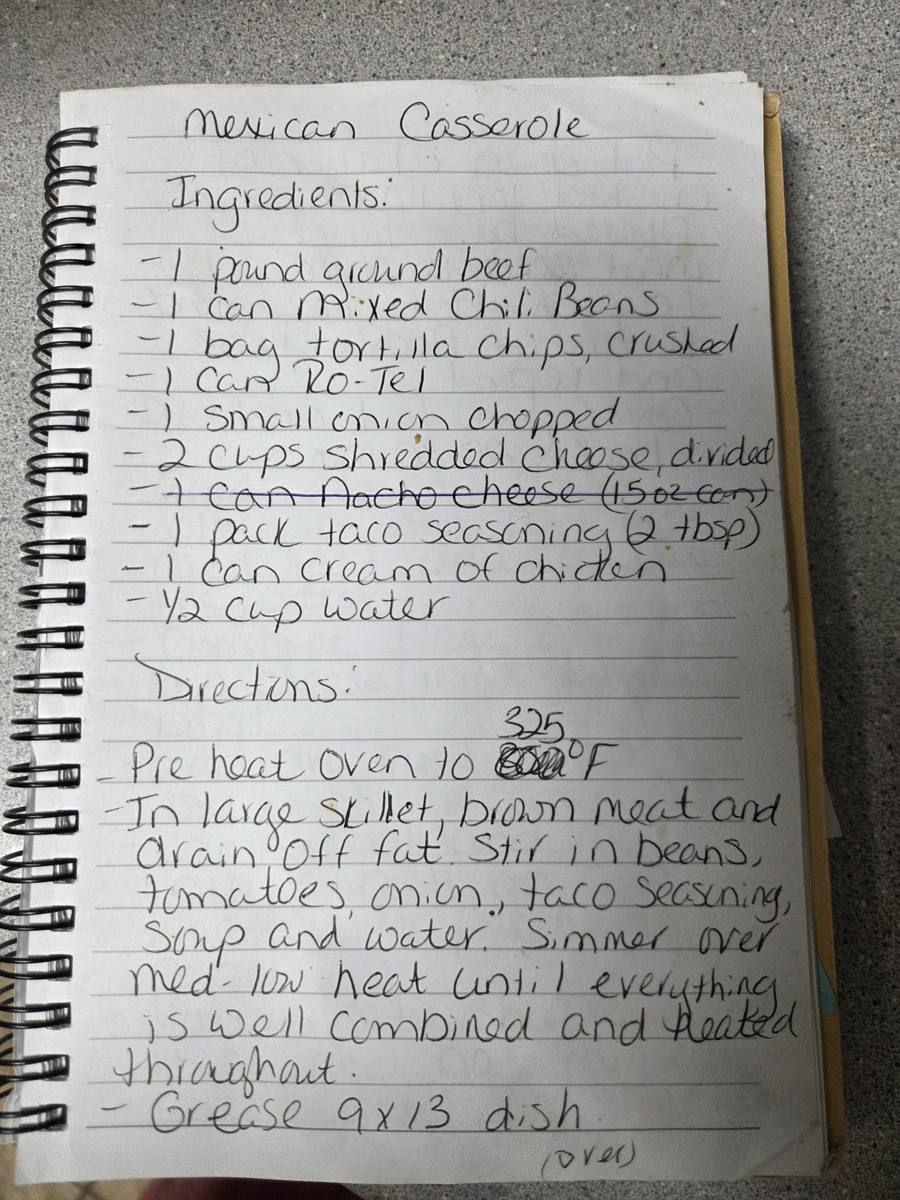 Mexican Casserole
Ingredients:
- 1 pound ground beef
- 1 can Mixed Chili Beans
- 1 bag tortilla chips, crushed
- 1 can Ro-Tel
- 1 small onion chopped
- 2 cups shredded cheese, divided
- 1 can Nacho cheese (15 oz can)
- 1 pack taco seasoning (2 tbsp)
- 1 can cream of chicken
- 1/2 cup water
Directions:
325
- Pre heat oven to °F
- In large skillet, brown meat and
drain off fat. Stir in beans,
tomatoes, onion, taco seasoning,
soup and water. Simmer over
med-low heat until everything
is well combined and heated
throughout.
- Grease 9x13 dish.
(over)